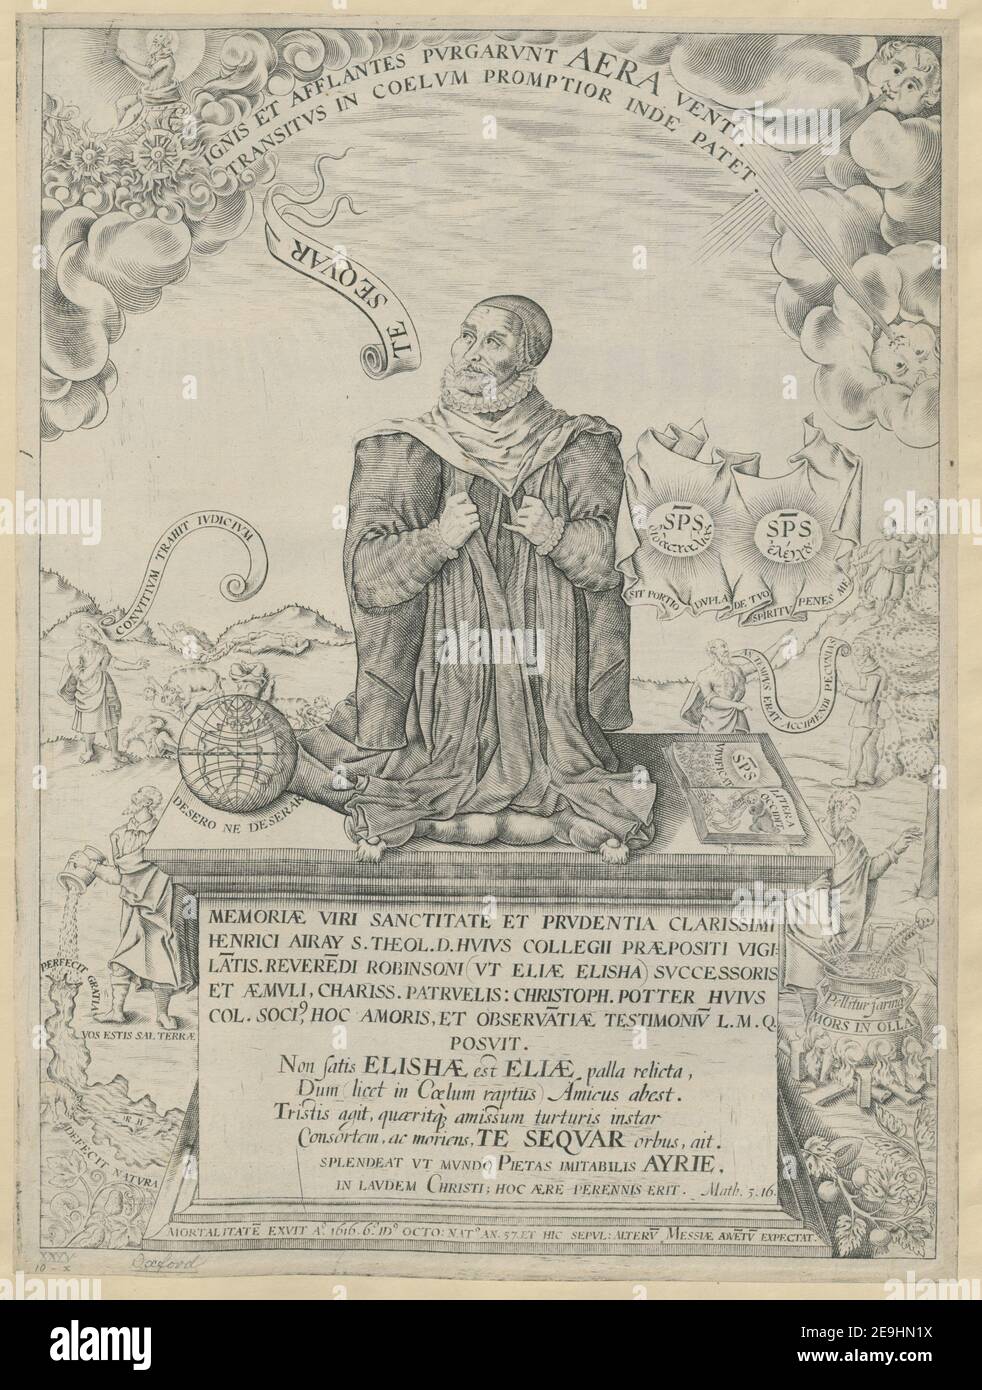 IGNIS ET AFFLANTES PVRGARVNT AERA VENTI,
TRANSITVS IN COELVM PROMPTIOR INDE PATET.
TE SEQVAR
CONVITIVM TRAHIT IVDICIVM
S̄P̄S
S̄P̄S
SIT PORTIO DVPLA DE TVO SPIRITV PENES ME
AN TEMPVS ERAT ACCIPIENDI PECVNIAM
DESERO NE DESERAR
SPS
VIVIFICAT
LITERA
OCCIDIT
PERFECIT GRATIA
VOS ESTIS SAL TERRÆ
DEFECIT NATVRA
MORS IN OLLA
MEMORIÆ VIRI SANCTITATE ET PRVDENTIA CLARISSIMI
HENRICI AIRAY S. THEOL. D. HVIVS COLLEGII PRÆPOSITI VIGI-
LĀTIS. REVERĒDI ROBINSONI (VT ELIÆ ELISHA) SVCCESSORIS
ET ÆMVLI, CHARISS. PATRVELIS: CHRISTOPH. POTTER HVIVS
COL. SOCI9, HOC AMORIS, ET OBSERVĀTIÆ TESTIMONIV̄ L. M. Q.
POSVIT.
Non satis ELISHÆ est ELIÆ palla relicta,
Dum (licet in Cœlum raptus) Amicus abest.
Tristis agit, quæritq̀ amissum turturis instar
Consortem, ac moriens, TE SEQVAR orbus, ait.
SPLENDEAT VT MVNDO PIETAS IMITABILIS AYRIE,
IN LAVDEM CHRISTI; HOC ÆRE PERENNIS ERIT. Math. 5.16.
MORTALITATĒ EXVIT Ao. 1616. 6o. IDo OCTO: NATo. AN. 57. ET HIC SEPVL: ALTERV̄ MESSIÆ ADVĒTV̄ EXPECTAT.
XXXV
10 - x
Oxford
alamy
Image ID: 2E9HN1X
www.alamy.com